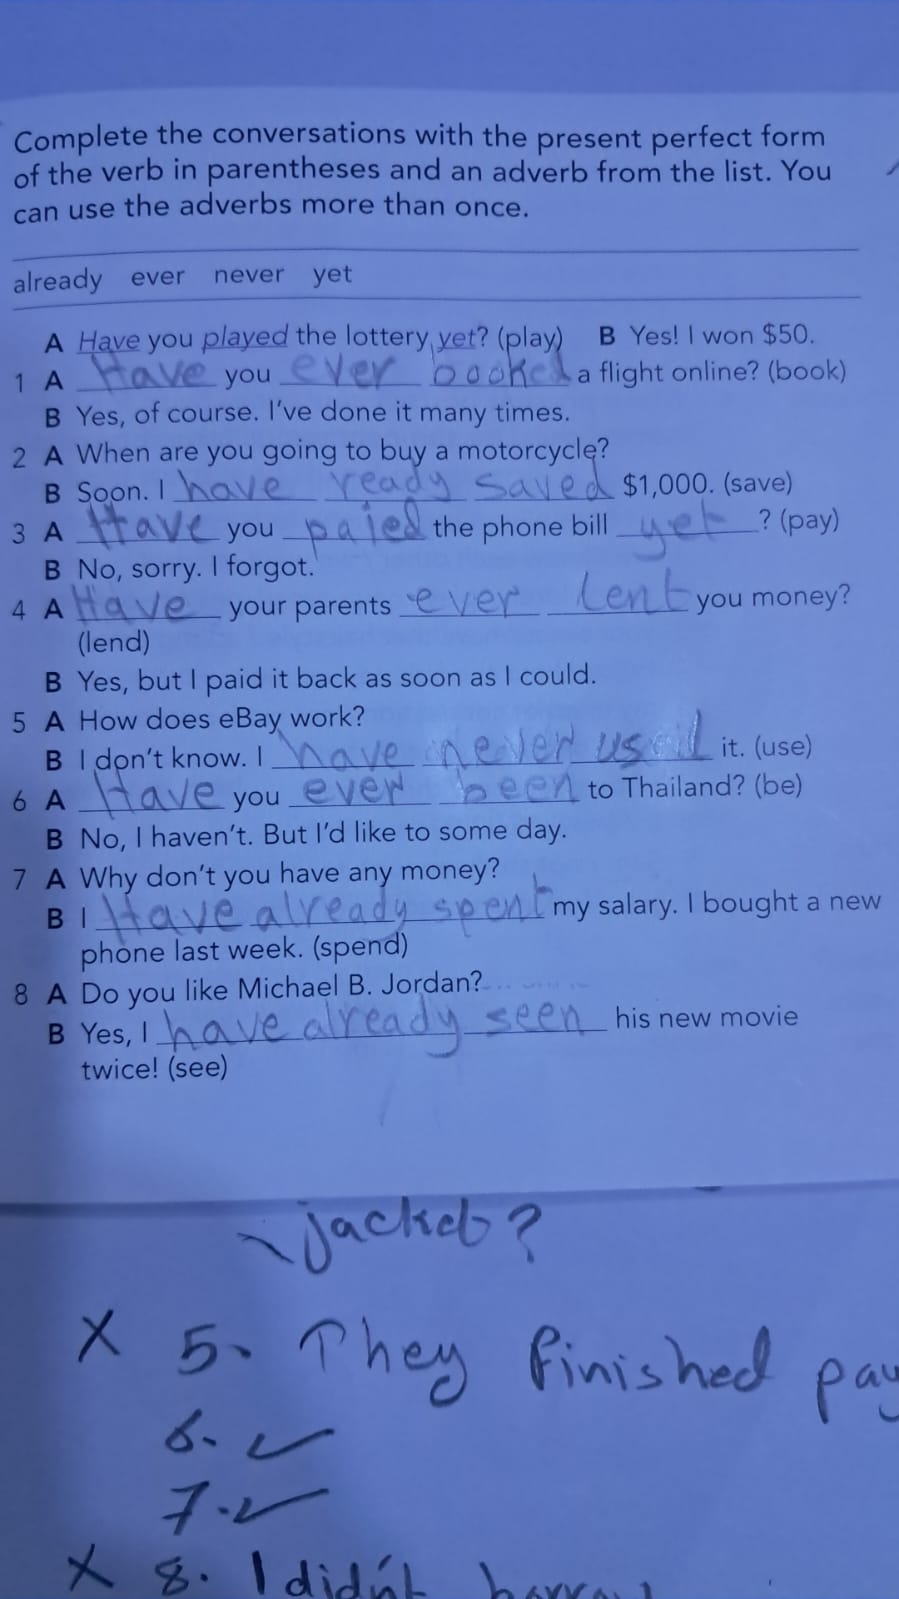 Complete the conversations with the present perfect form
of the verb in parentheses and an adverb from the list. You
can use the adverbs more than once.
already ever never yet
A Have you played the lottery yet? (play) B Yes! I won $50.
1 A Have you ever booked a flight online? (book)
B Yes, of course. I've done it many times.
2 A When are you going to buy a motorcycle?
B Soon. I have ready saved $1,000. (save)
3 A Have you paied the phone bill yet? (pay)
B No, sorry. I forgot.
4 A Have your parents ever lent you money?
(lend)
B Yes, but I paid it back as soon as I could.
5 A How does eBay work?
B I don't know. I have never it. (use)
6 A Have you ever been to Thailand? (be)
B No, I haven't. But I'd like to some day.
7 A Why don't you have any money?
B I Have already spent my salary. I bought a new
phone last week. (spend)
8 A Do you like Michael B. Jordan?
B Yes, I have already seen his new movie
twice! (see)
jacket?
X 5. They finished pay
6. ✓
7. ✓
X 8. I didn't